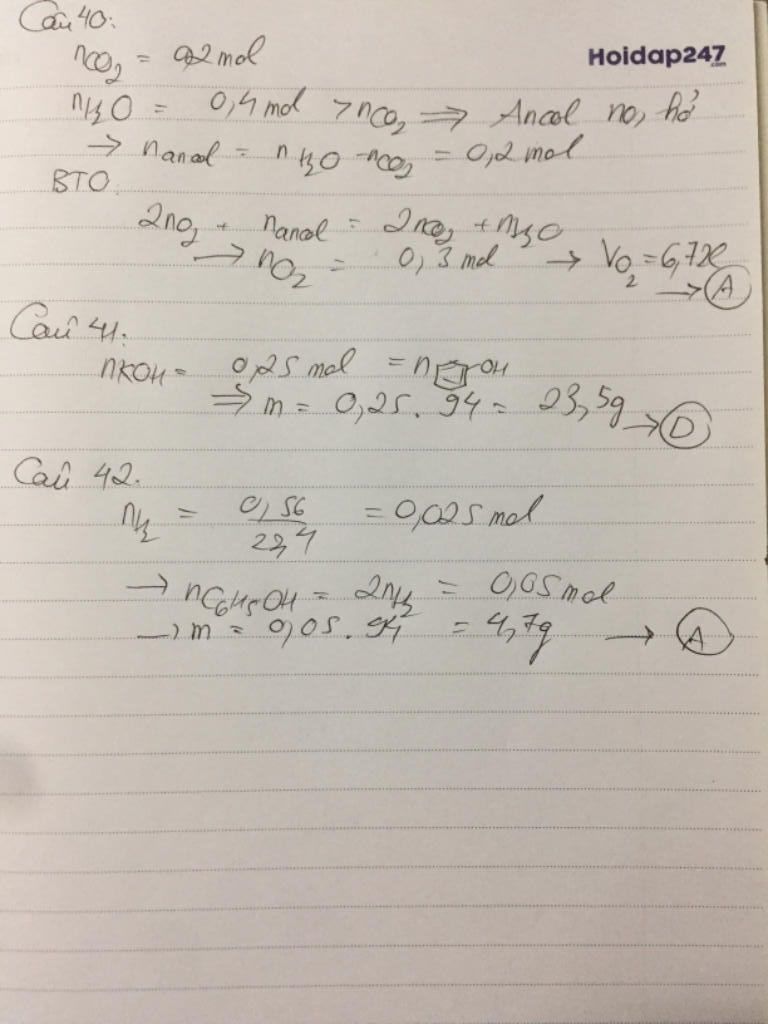 Câu 40:
nCO2 = 0,2 mol
Hoidap247
.com
nH2O = 0,4 mol > nCO2 ⇒ Ancol no, hở
→ nancol = nH2O - nCO2 = 0,2 mol
BTO
2nO2 + nancol = 2nCO2 + nH2O
→ nO2 = 0,3 mol → VO2 = 6,72l
→ A
Câu 41:
nKOH = 0,25 mol = n OH
⇒ m = 0,25. 94 = 23,5g → D
Câu 42.
nH2 = 0,56 / 22,4 = 0,025 mol
→ nC6H5OH = 2nH2 = 0,05 mol
→ m = 0,05. 94 = 4,7g → A